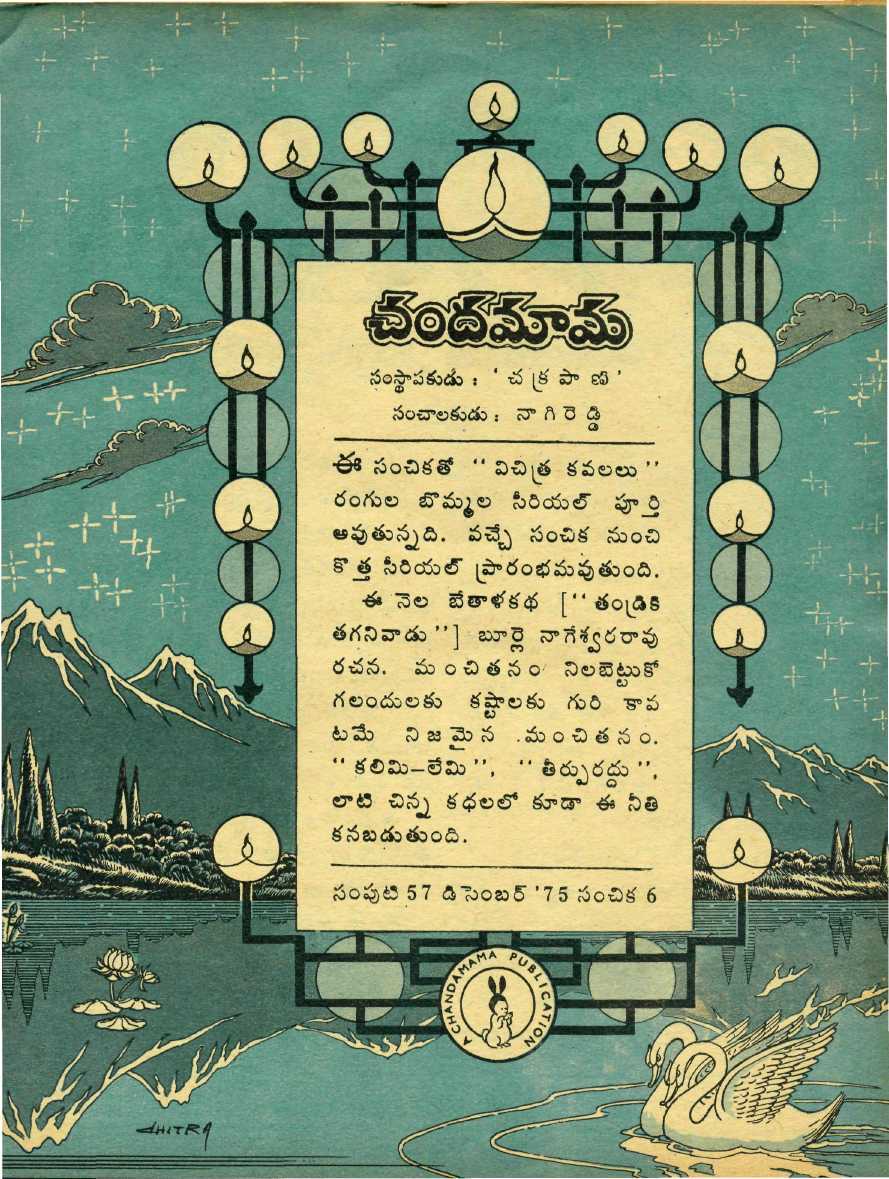 చందమామ
సంస్థాపకుడు : ' చ క్ర పా ణి '
సంచాలకుడు : నా గి రె డ్డి
ఈ సంచికతో " విచిత్ర కవలలు "
రంగుల బొమ్మల సీరియల్ పూ ర్తి
అవుతున్నది. వచ్చే సంచిక నుంచి
కొత్త సీరియల్ ప్రారంభమవుతుంది.
ఈ నెల బేతాళకథ [" తండ్రికి
తగనివాడు "] బూర్లె నాగేశ్వరరావు
రచన. మంచితనం నిలబెట్టుకో
గలందులకు కష్టాలకు గురి కావ
టమే నిజమైన మంచితనం.
" కలిమి–లేమి ", " తీర్పురద్దు ",
లాటి చిన్న కథలలో కూడా ఈ నీతి
కనబడుతుంది.
సంపుటి 57 డిసెంబర్ '75 సంచిక 6
A CHANDAMAMA PUBLICATION
CHITRA